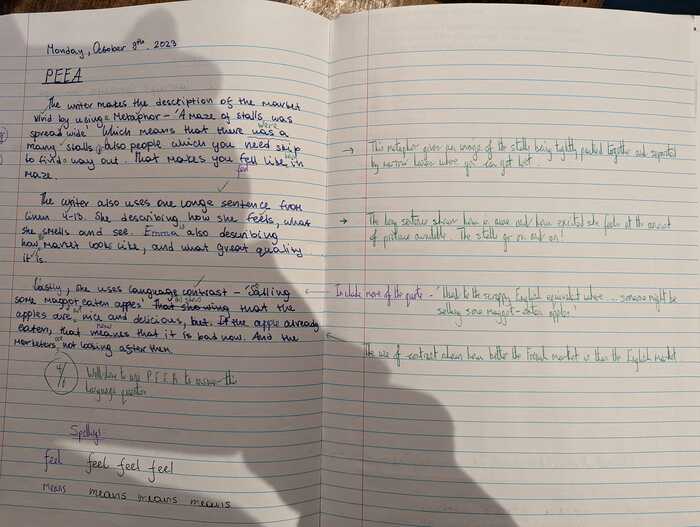 Monday, October 8th, 2023
PEEA
The writer makes the description of the market
vivid by using = Metaphor - 'A maze of stalls was
spread wide' Which means that there was a
were
many stalls, also people which you need skip
to find = way out. That makes you fell like in
feel
maze.
The writer also uses one longe sentence from
linen 4-13. She describing how she feels, what
she smells and see. Emma also describing
how market looks like, and what great quality
it is.
Lastly, she uses language contrast - 'Salling
some maggot eaten apples' That showing that the
apples are nice and delicious, but. If the apple already
eaten, that means that it is bad now. And the
marketers not loosing after them.
4/8
Well done to use P.E.E.A to answer the
language question
Spellings
feel feel feel feel
means means means means
→ This metaphor gives an image of the stalls being tightly packed together and separated
by narrow lanes where you can get lost.
→ The long sentence shows how in awe and how excited she feels at the amount
of produce available. The stalls go on and on!
Include more of the quote - 'Used to the scrappy English equivalent where ... someone might be
selling some maggot-eaten apples'
The use of contrast shows how better the French market is than the English market